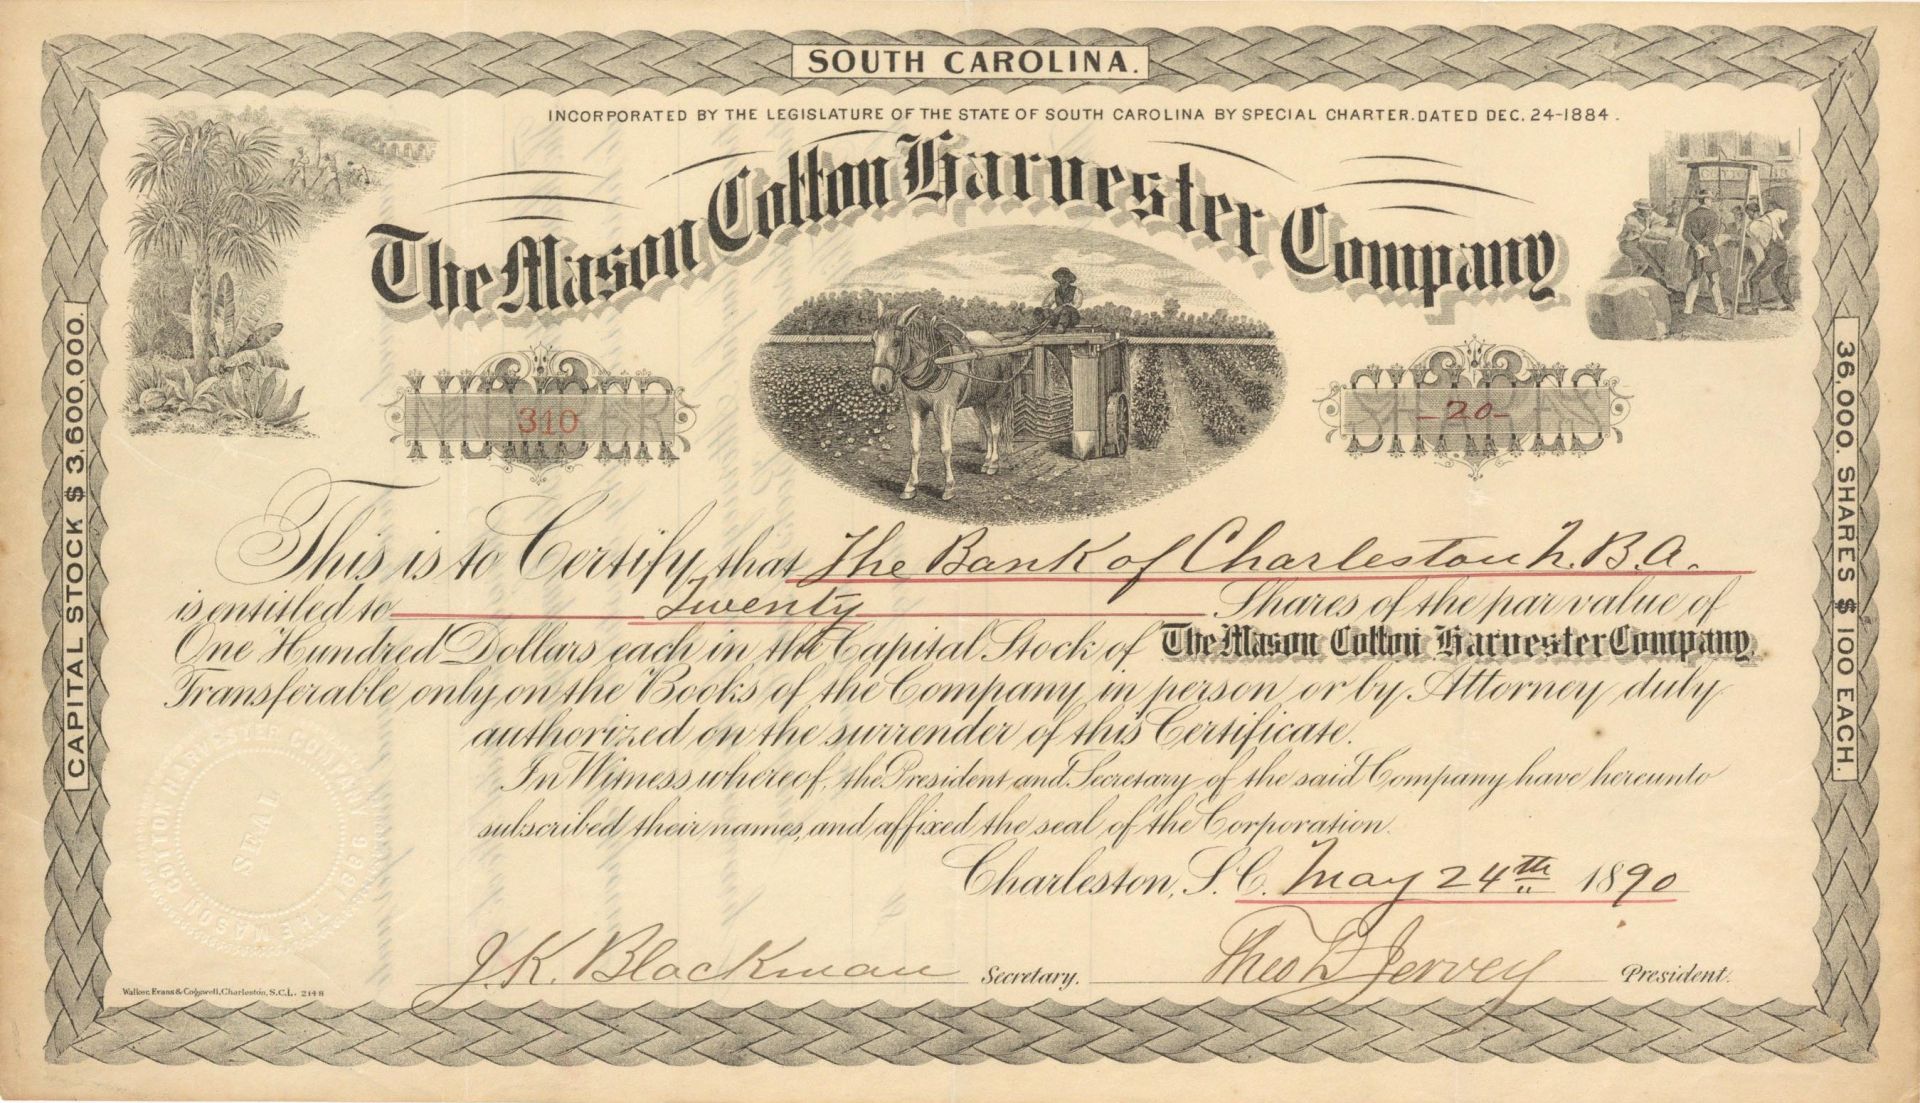 SOUTH CAROLINA.
INCORPORATED BY THE LEGISLATURE OF THE STATE OF SOUTH CAROLINA BY SPECIAL CHARTER. DATED DEC. 24-1884.
The Mason Cotton Harvester Company
NUMBER 310
SHARES -20-
CAPITAL STOCK $ 3,600,000.
36,000. SHARES $ 100 EACH.
This is to Certify that The Bank of Charleston N.B.A.
is entitled to Twenty Shares of the par value of
One Hundred Dollars each in the Capital Stock of The Mason Cotton Harvester Company.
Transferable only on the Books of the Company in person or by Attorney duly
authorized on the surrender of this Certificate.
In Witness whereof, the President and Secretary of the said Company have hereunto
subscribed their names, and affixed the seal of the Corporation.
Charleston, S.C. May 24th 1890
J.K. Blackman Secretary. Theo D Jervey President.
THE MASON COTTON HARVESTER COMPANY 1886
SEAL
Walker, Evans & Cogswell, Charleston, S.C.L. 2148